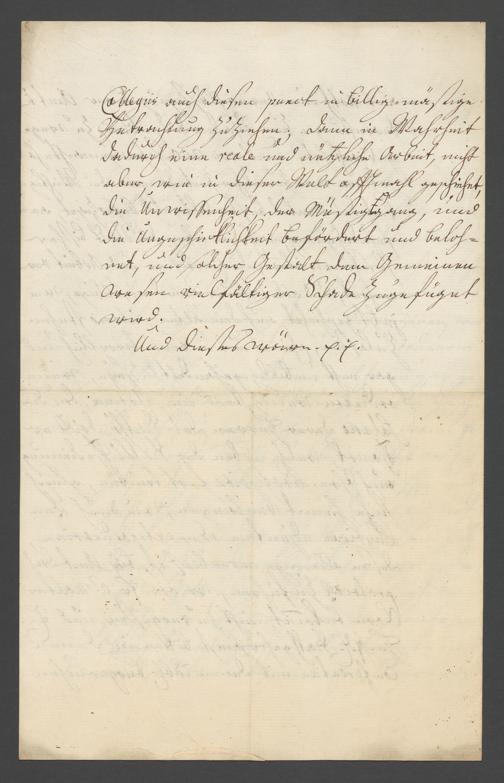 Collegiis auch diesen punct in billig-mäßige
Betrachtung zu ziehen, dann in Wahrheit
dadurch eine reale und nützliche Arbeit, nicht
aber, wie in dieser Welt offtmahl geschiehet,
die Unwissenheit, der Müßiggang, und
die Ungeschicklichkeit befördert und beloh-
net, und solcher Gestalt dem Gemeinen
wesen vielfältiger Schade zugefüget
wird.
Und dieses wären. p. p.